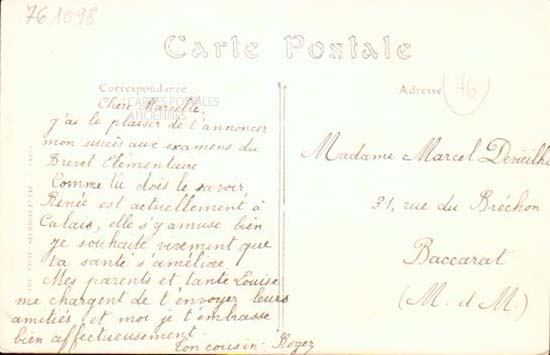 76 1098
Carte Postale
Correspondance
CARTES POSTALES
ANCIENNES
Adresse
76
Chère Marcelle,
j'ai le plaisir de t'annoncer
mon succès aux examens du
Brevet Elémentaire
Comme tu dois le savoir,
Renée est actuellement à
Calais, elle s'y amuse bien
je souhaite vivement que
ta santé s'améliore.
Mes parents et tante Louise
me chargent de t'envoyer leurs
amitiés et moi je t'embrasse
bien affectueusement.
Ton cousin. Roger
Madame Marcel
31, rue du Bréchon
Baccarat
(M. et M.)